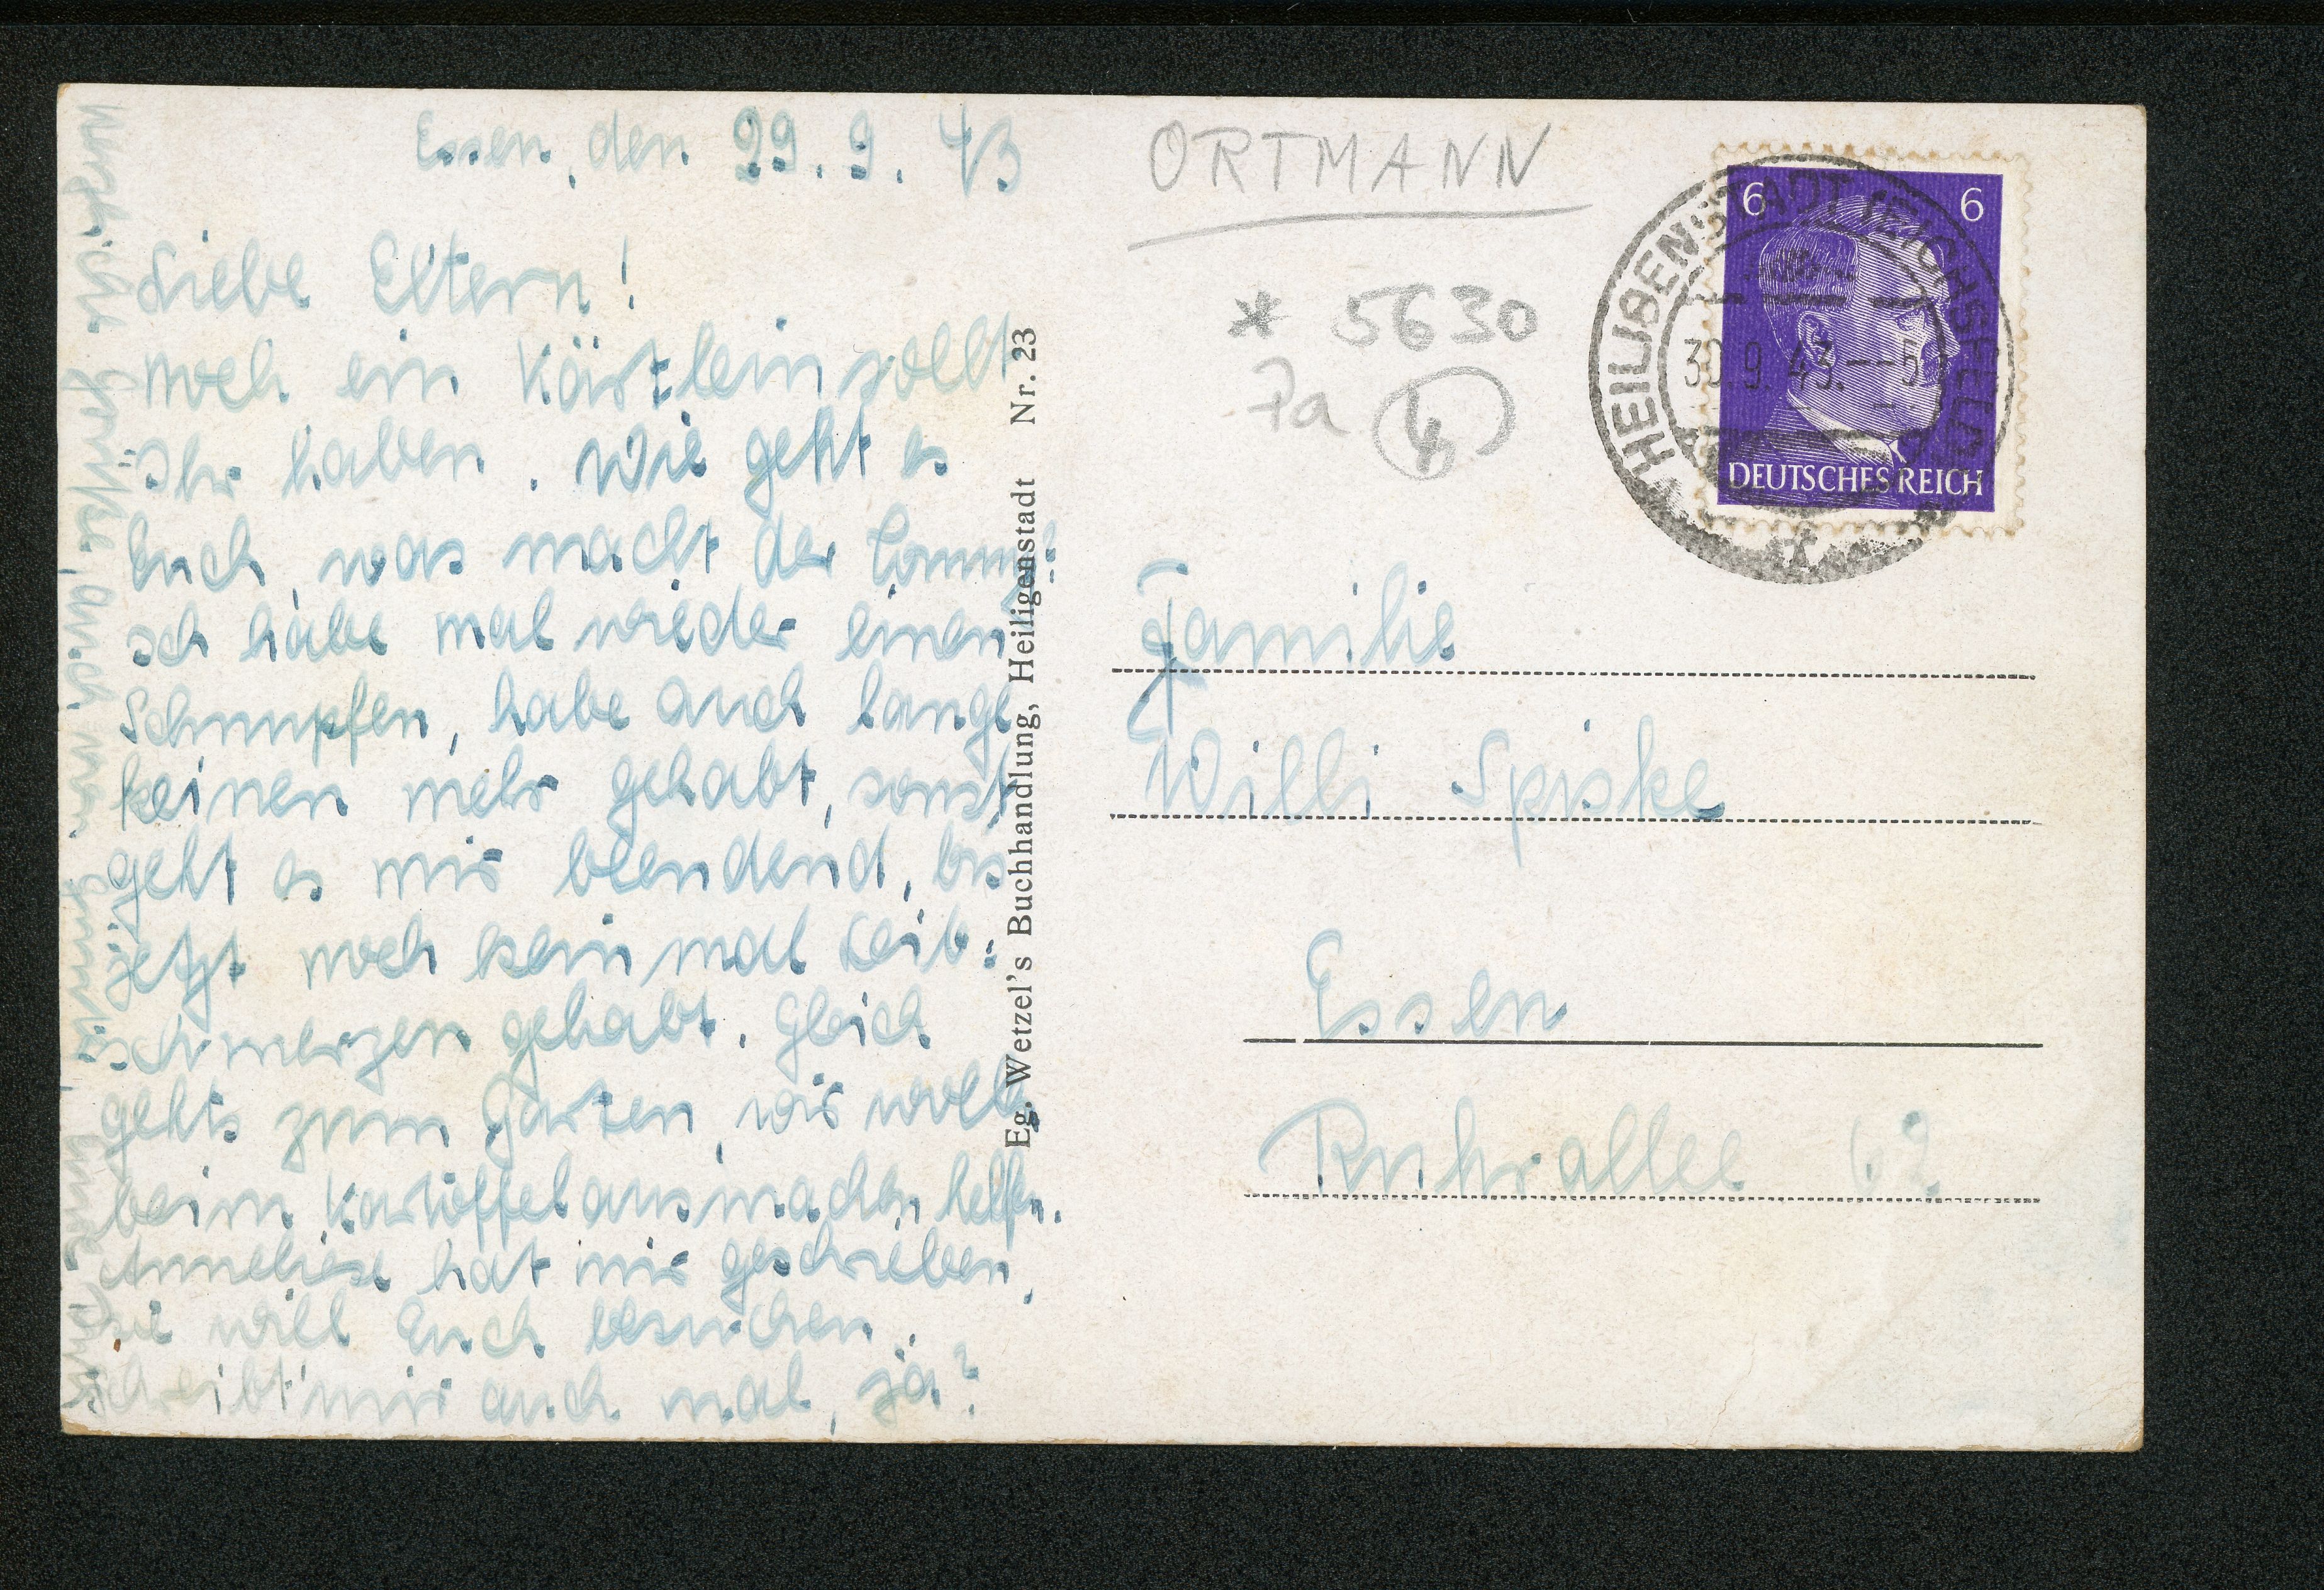 Essen, den 29. 9. 43
Liebe Eltern!
noch ein Kärtlein sollt
Ihr haben. Wie geht es
Euch, was macht der Tommy?
Ich habe mal wieder einen
Schnupfen, habe auch lange
keinen mehr gehabt, sonst
geht es mir blendend, bis
jetzt noch kein mal Leib-
schmerzen gehabt. Gleich
gehts zum Garten, wir wolln
beim Kartoffelausmachen helfen.
Anneliese hat mir geschrieben,
sie will Euch besuchen.
Schreibt mir auch mal, ja?
Herzliche Grüße, auch von
Eure
Eg. Wetzel's Buchhandlung, Heiligenstadt Nr. 23
ORTMANN
* 5630
Pa
6 6
DEUTSCHES REICH
HEILIGENSTADT (EICHSFELD)
30.9.43.--5
Familie
Willi Spiske
Essen
Ruhrallee 62